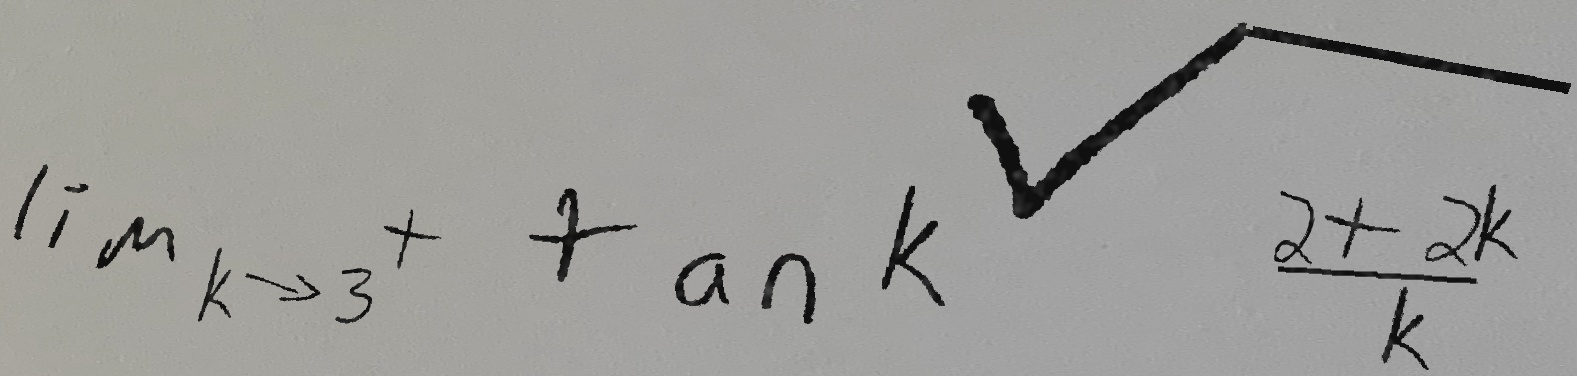 \lim_{k \to 3^+} \tan k \sqrt{\frac{2 + 2k}{k}}